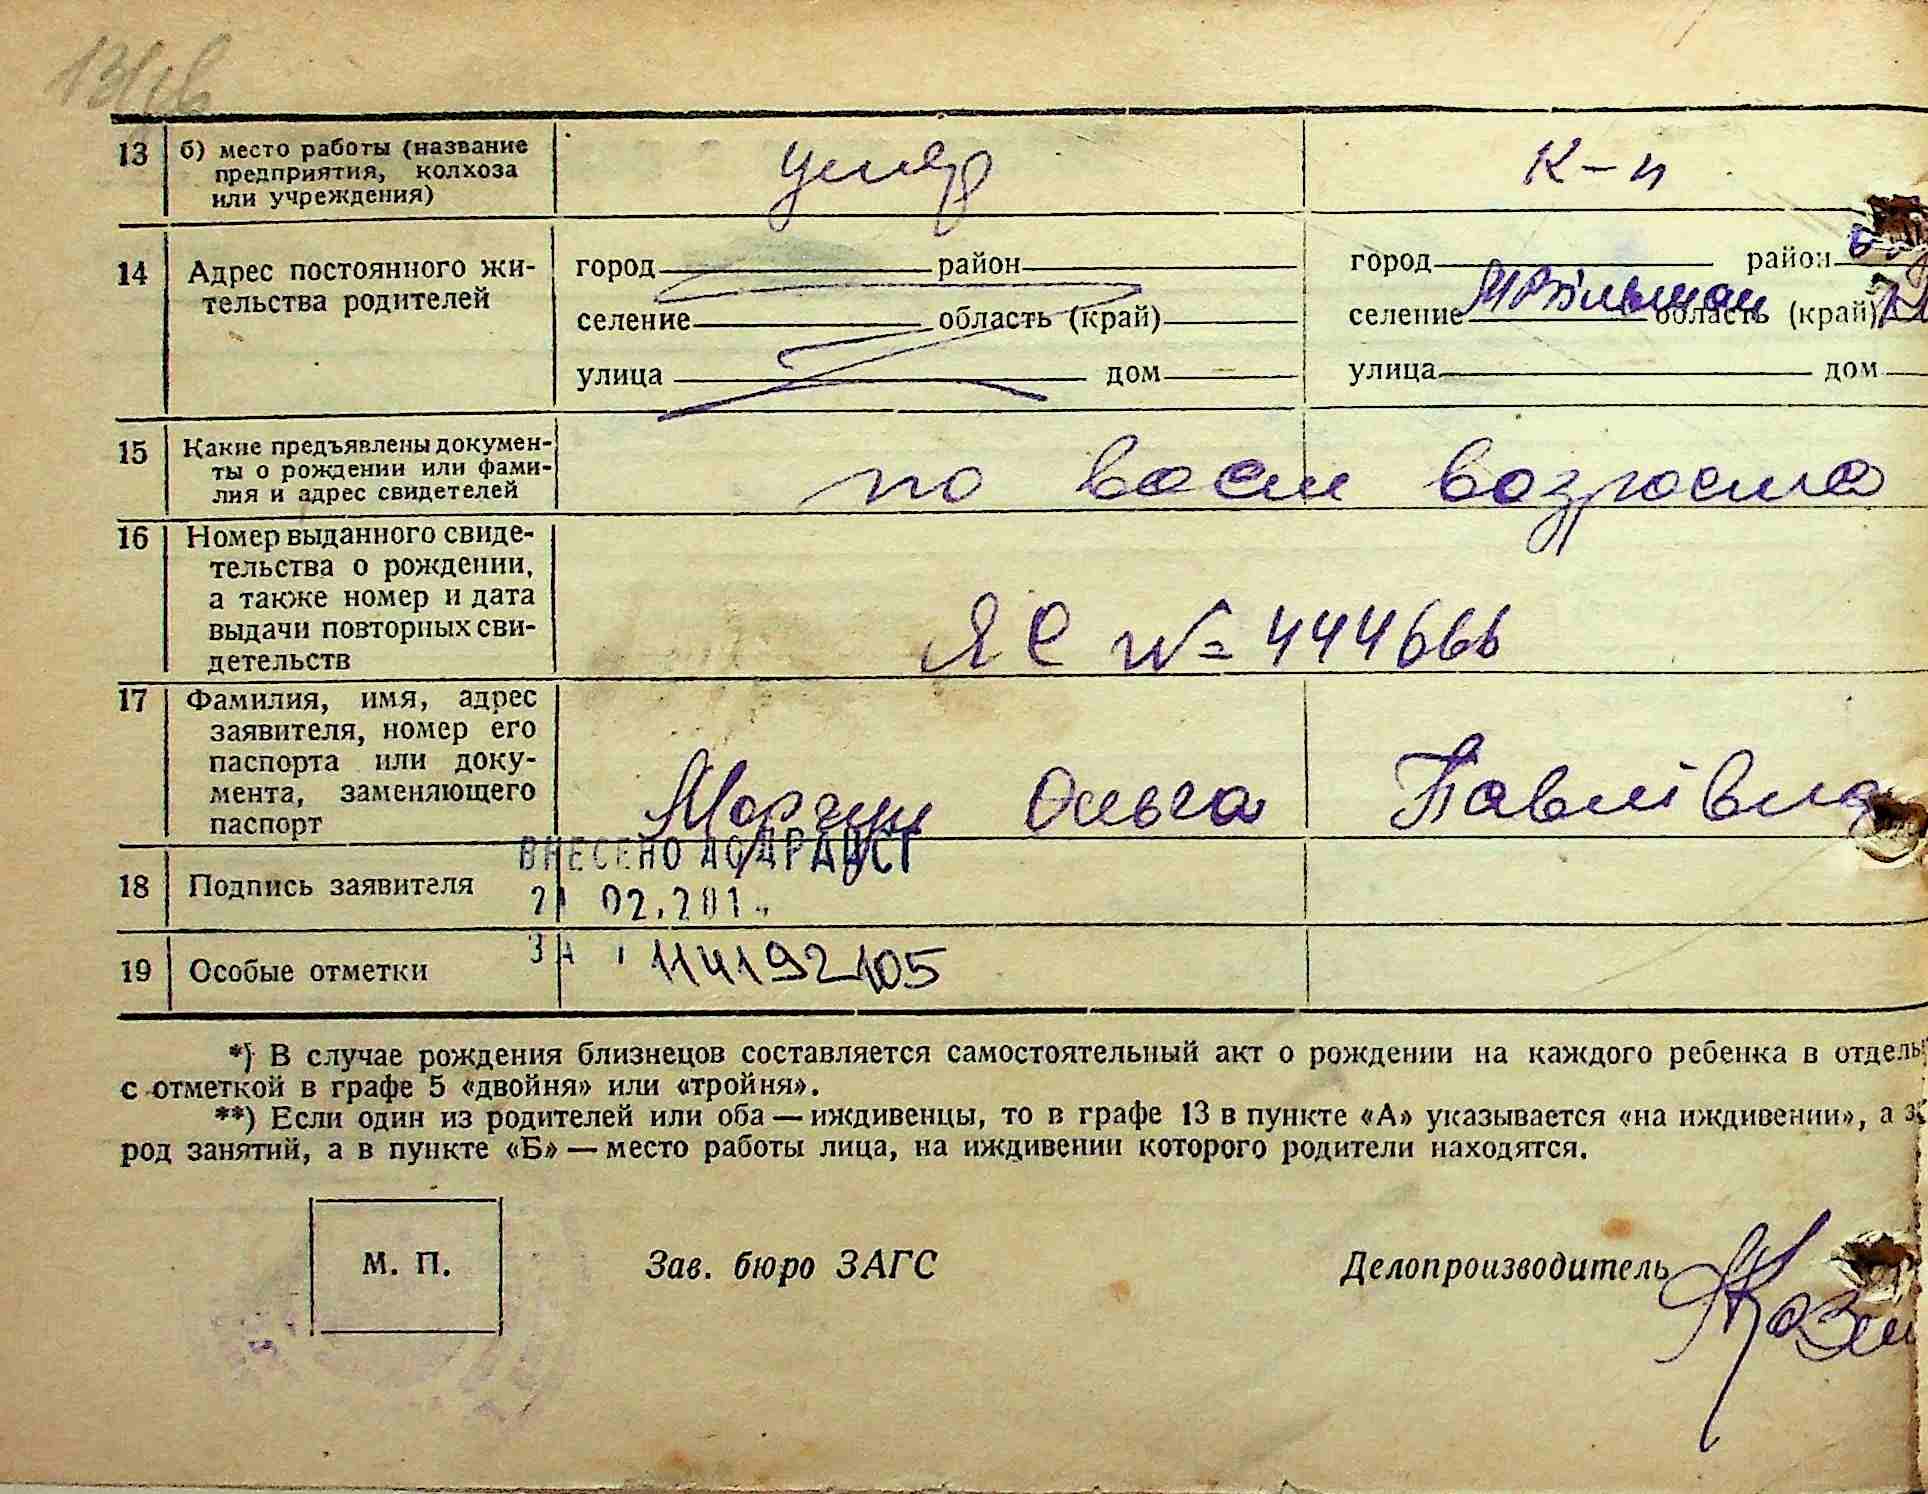 13 б) место работы (название предприятия, колхоза или учреждения) умер К-н
14 Адрес постоянного жительства родителей
город район город район
селение область (край) селение область (край)
улица дом улица дом
15 Какие предъявлены докумен-
ты о рождении или фами-
лия и адрес свидетелей
по возрасту
16 Номер выданного свиде-
тельства о рождении,
а также номер и дата
выдачи повторных сви-
детельств
ЯС № 444666
17 Фамилия, имя, адрес
заявителя, номер его
паспорта или доку-
мента, заменяющего
паспорт
Моргун Ольга Павлівна
ВНЕСЕНО ДО ДРАЦСГ
18 Подпись заявителя
02.201
ЗА
19 Особые отметки 114192105
*) В случае рождения близнецов составляется самостоятельный акт о рождении на каждого ребенка в отдель
с отметкой в графе 5 «двойня» или «тройня».
**) Если один из родителей или оба — иждивенцы, то в графе 13 в пункте «А» указывается «на иждивении», а
род занятий, а в пункте «Б» — место работы лица, на иждивении которого родители находятся.
М. П. Зав. бюро ЗАГС Делопроизводитель